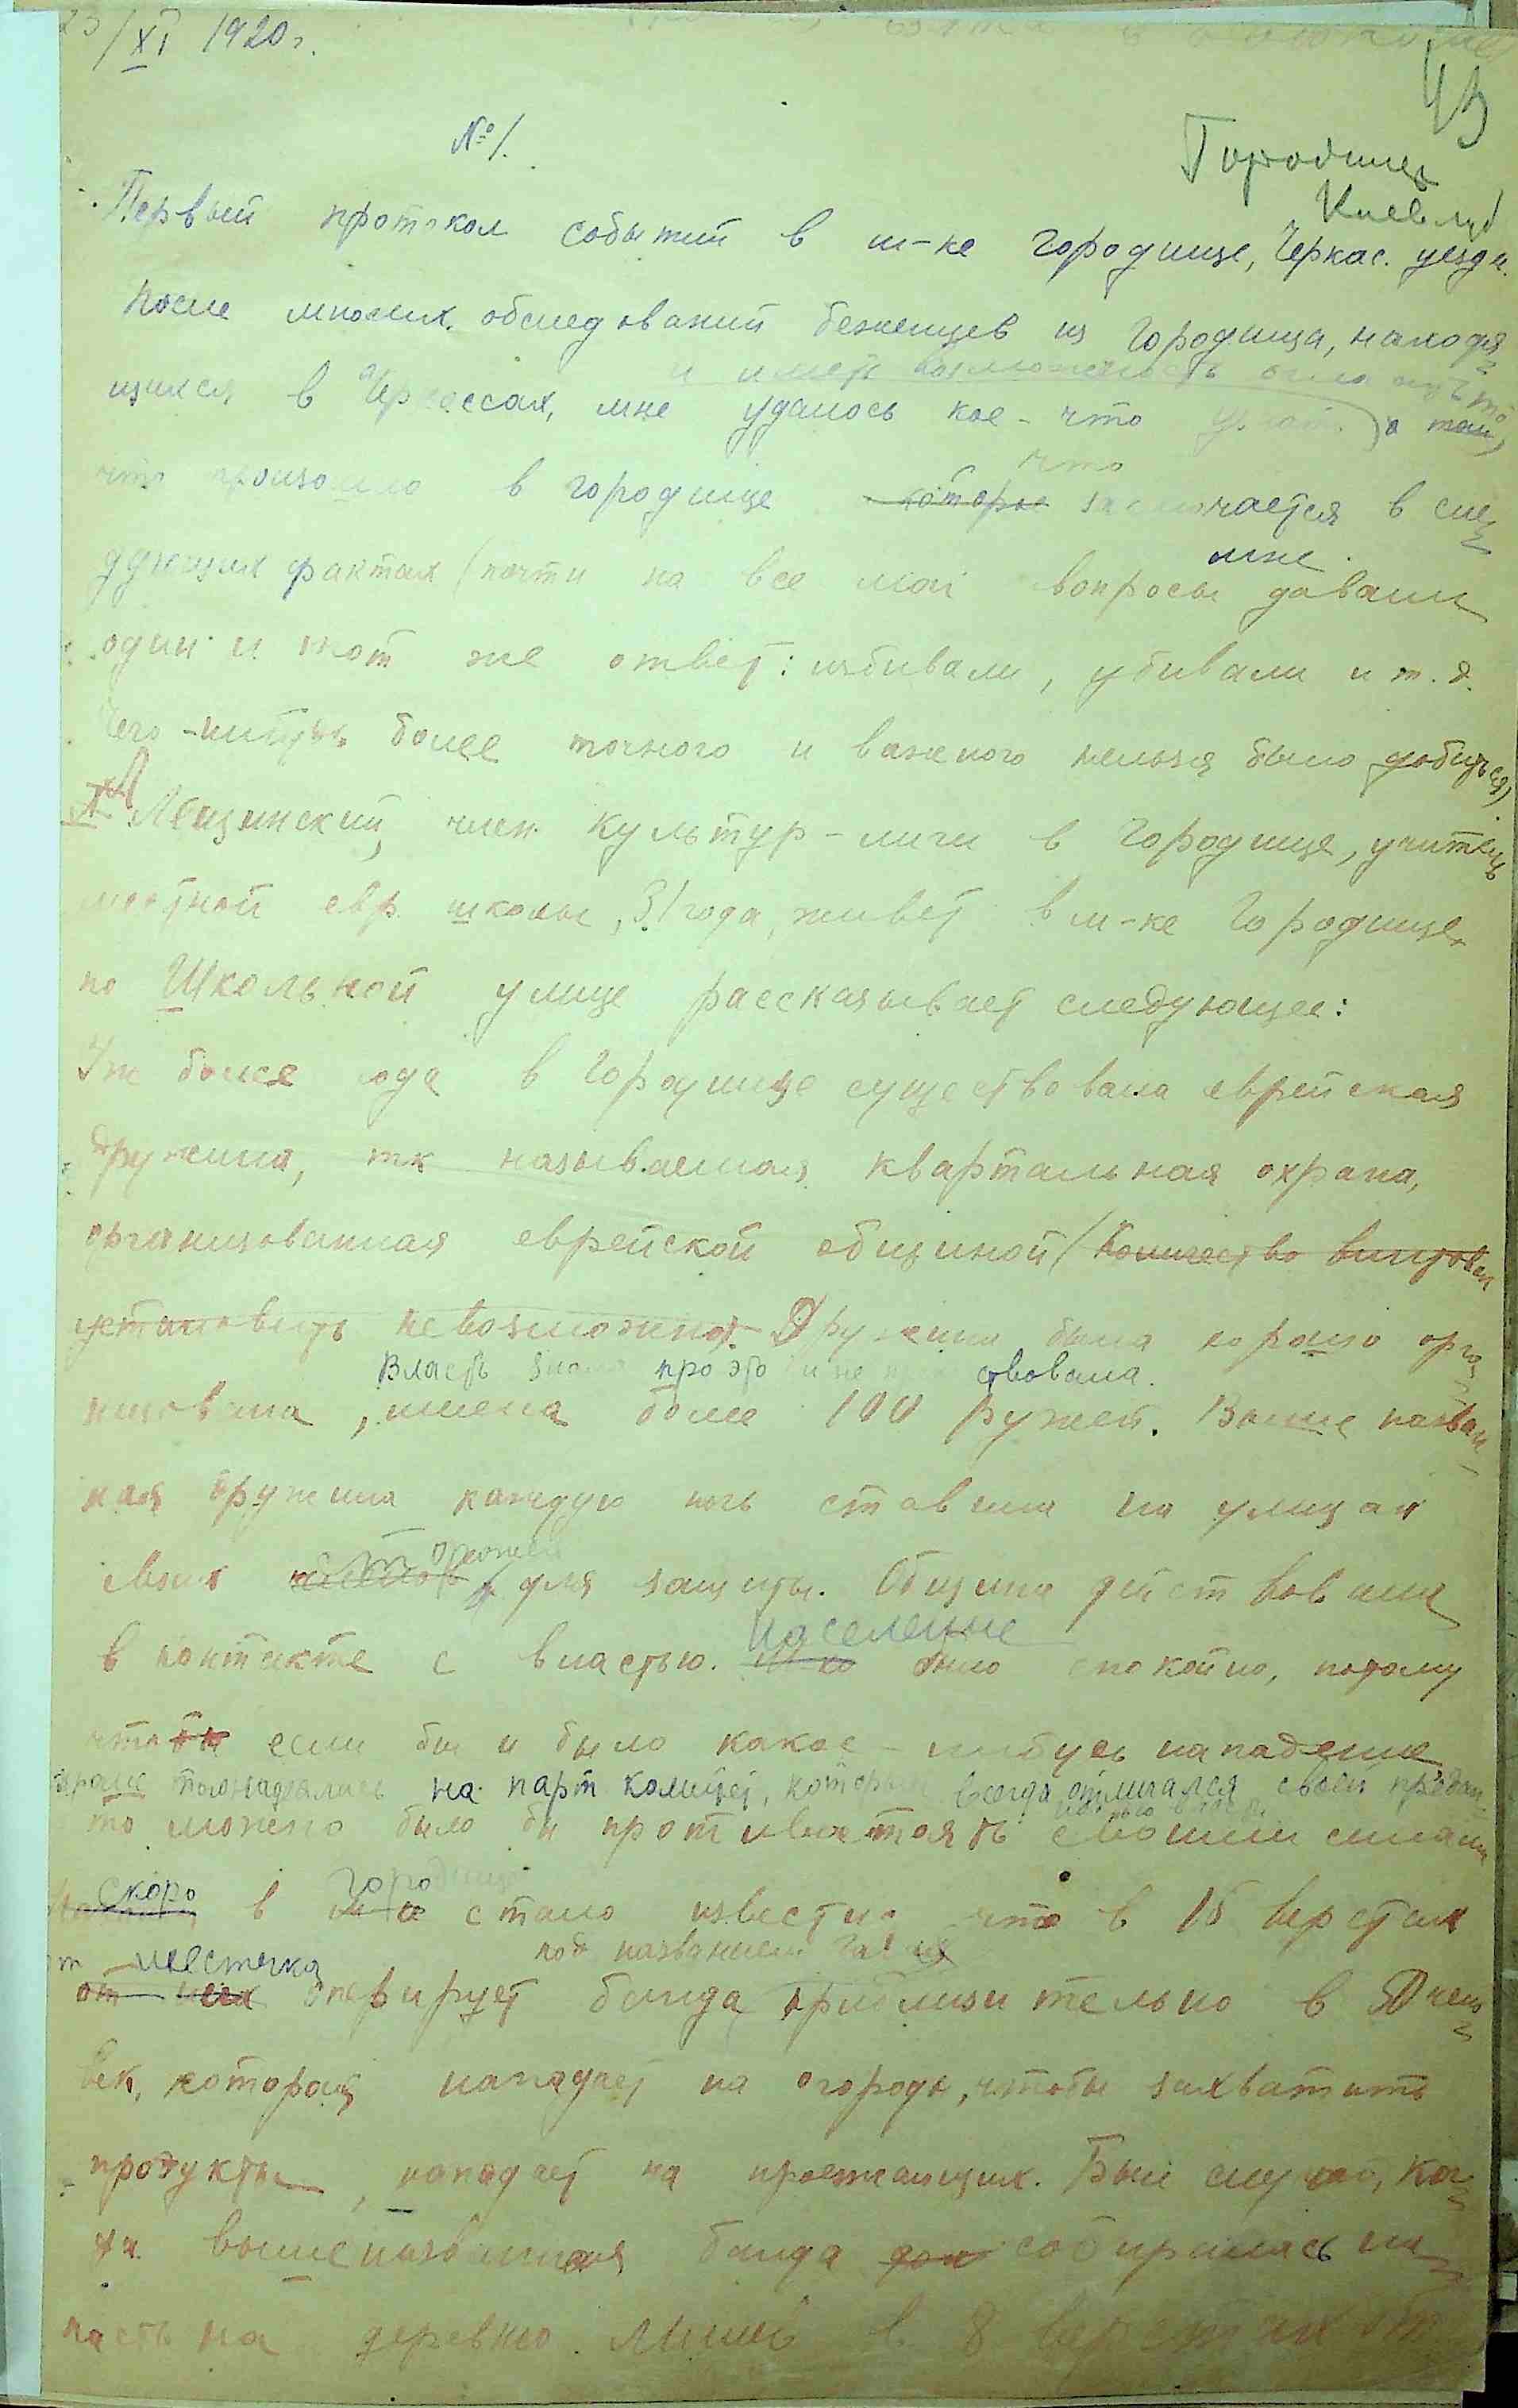 23/XI 1920 г.
43
№ 1.
Городище
Киев губ
Первый протокол событий в м-ке Городище, Черкас. уезда.
После многих обследований беженцев из Городища, находя
и иметь возможность было
щихся в Черкассах, мне удалось кое-что узнать о том,
что
что произошло в Городище которое заключается в сле
мне
дующих фактах (почти на все мои вопросы давали
один и тот же ответ: избивали, убивали и т.д.
Чего-нибудь более точного и важного нельзя было добиться)
Лещинский, член Культур-лиги в Городище, учитель
местной евр. школы, 31 года, живет в м-ке Городище
по Школьной улице рассказывает следующее:
Уж более года в Городище существовала еврейская
дружина, так называемая квартальная охрана,
организованная еврейской общиной (Количество винтовок
установить невозможно). Дружина была хорошо орга
Власть знала про это и не ствовала.
низована, имела более 100 ружей. Выше назван
ная дружина каждую ночь ставила на улицах
своих для защиты. Община действовала
население
в контакте с властью. было спокойно, потому
что если бы и было какое-нибудь нападение
надеялись на парт комитет, который всегда отличался своей
то можно было бы противостоять своими силами
скоро Городище
в стало известно что в 15 верстах
от местечка под названием
от него оперирует банда приблизительно в чело
век, которая нападает на огороды, чтобы захватить
продукты, нападает на проезжающих. Был случай, ког
да вышеназванная банда собиралась на
пасть на деревню Млиев в 8 верстах от